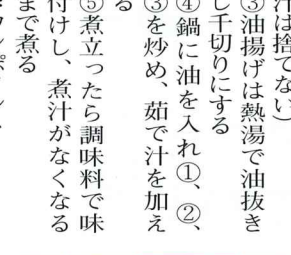 汁は捨てない)
③油揚げは熱湯で油抜き
し千切りにする
④鍋に油を入れ①、②、
③を炒め、茹で汁を加え
る
⑤煮立ったら調味料で味
付けし、煮汁がなくなる
まで煮る